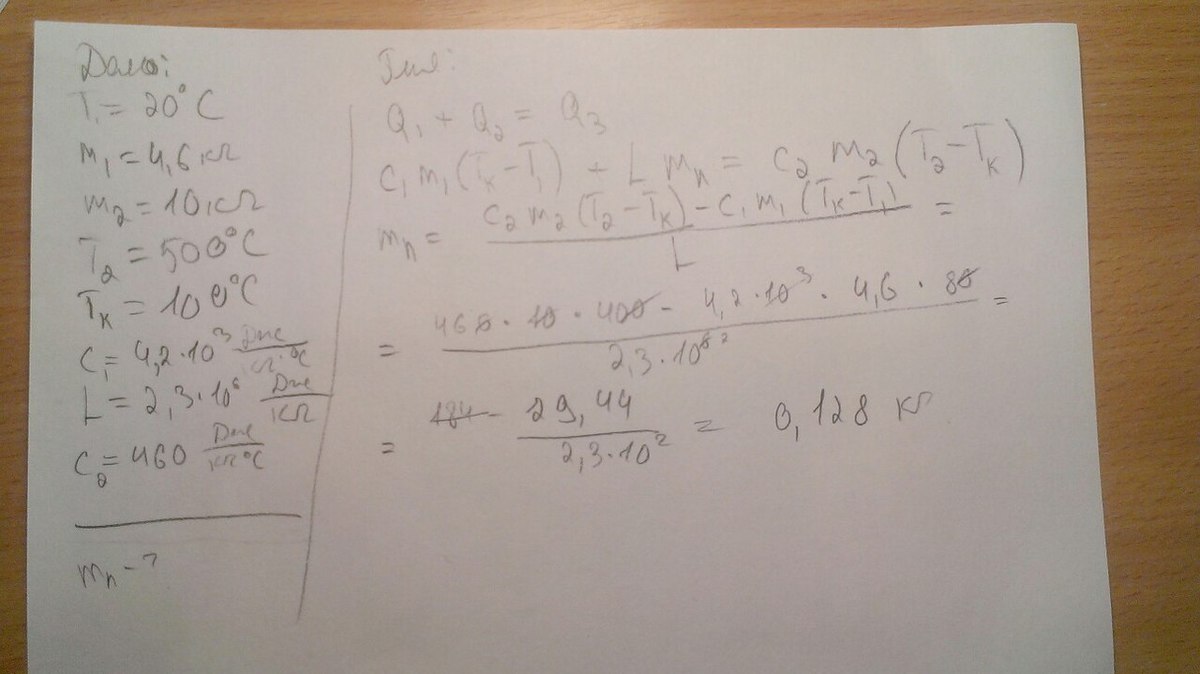 Дано:
T₁ = 20°C
m₁ = 4,6 кг
m₂ = 10 кг
T₂ = 500°C
Tк = 100°C
C₁ = 4,2·10³ Дж/кг·°C
L = 2,3·10⁶ Дж/кг
C₂ = 460 Дж/кг°C
mп - ?
Q₁ + Q₂ = Q₃
C₁ m₁ (Tк - T₁) + L mп = C₂ m₂ (T₂ - Tк)
mп = (C₂ m₂ (T₂ - Tк) - C₁ m₁ (Tк - T₁)) / L =
= (460 · 10 · 400 - 4,2·10³ · 4,6 · 80) / 2,3·10⁶ ² =
= 184 - 29,44 / 2,3·10² = 0,128 кг